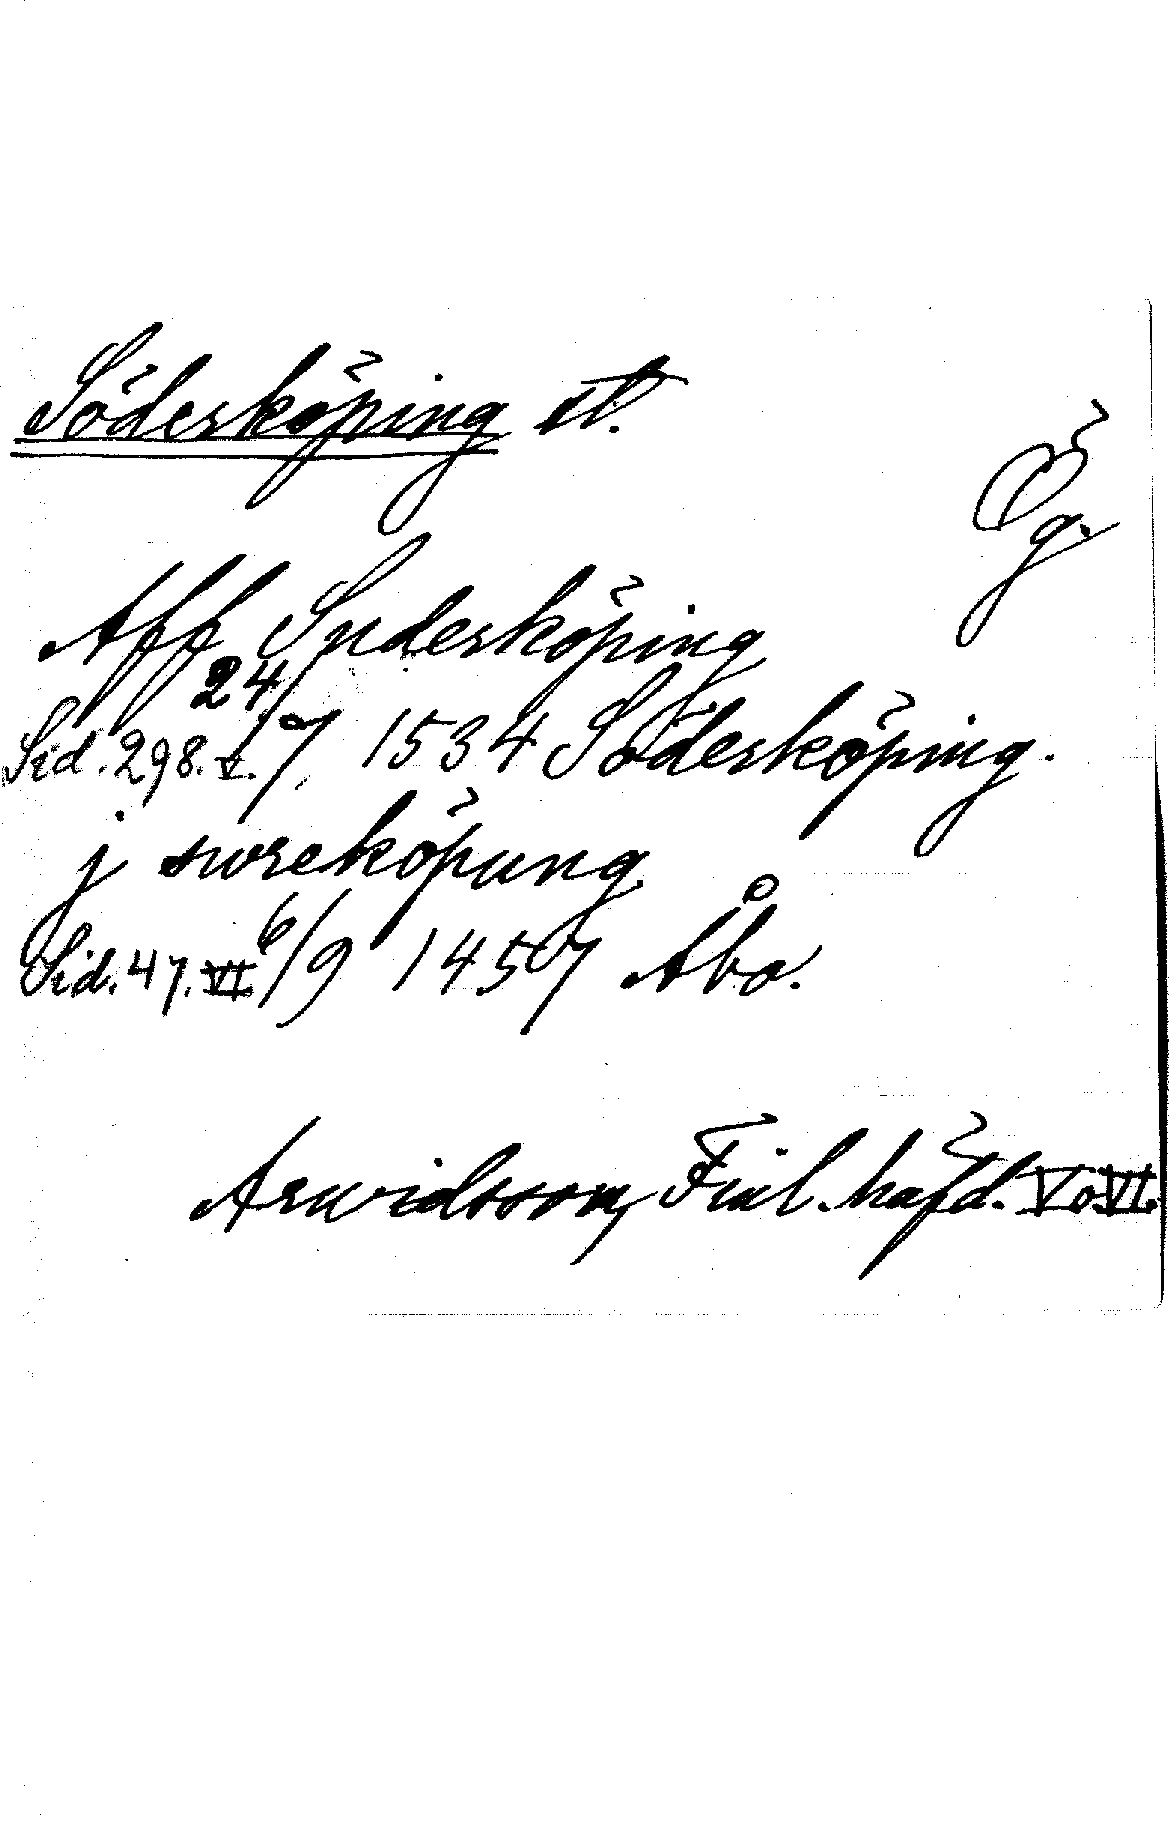 Söderköping st.
Ög.
Aff Suderköping
Sid. 298. V. 24/7 1534 Söderköping.
j sureköpung
Sid. 47. VI. 6/9 1457 Åbo.
Arwidsson, Finl. häfd. V o. VI.